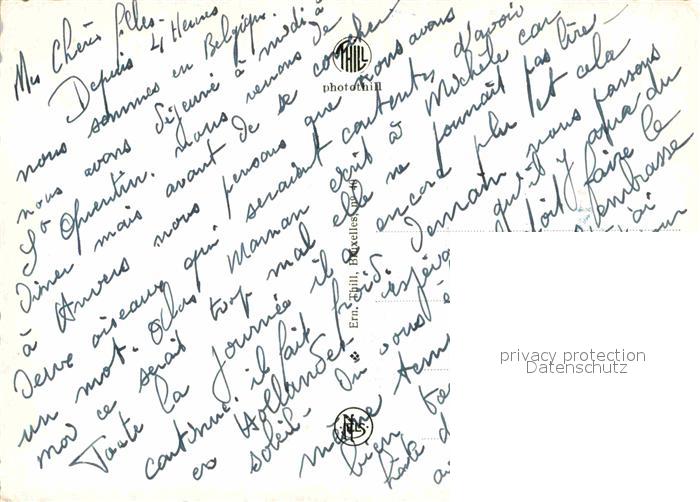 Mes Chères filles -
Depuis 4 Heures
nous sommes en Belgique.
nous avons déjeuné à midi à
St Quentin. nous venons de
diner mais avant de se coucher
à Anvers nous pensons que nous avons
deux oiseaux qui seraient contentes d'avoir
un mot. Maman écrit à Michèle car
moi ce serait trop mal elle ne pourrait pas lire -
Toute la journée il a encore plu et cela
continue. il fait froid. Demain nous passons
en Hollande espérons qu'il y aura du
soleil - On vous doit faire le
même tem embrasse
bien j'ai
THILL
photothill
Ern. Thill, Bruxelles, n°
NELS
privacy protection
Datenschutz